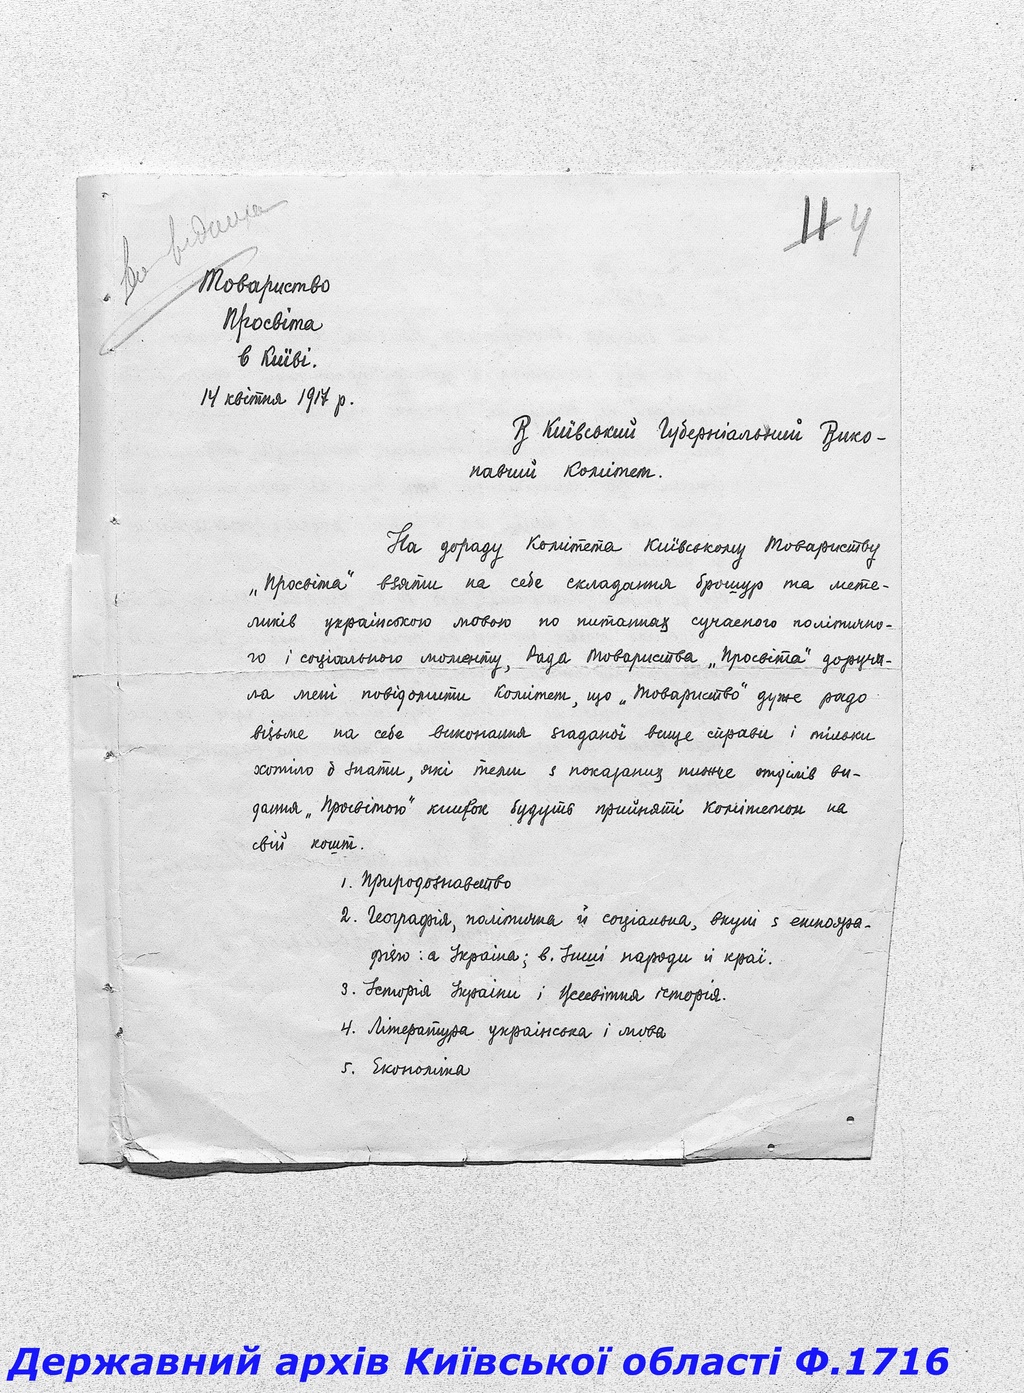 4
Товариство
Просвіта
в Київі.
14 квітня 1917 р.
В Київський Губерніальний Вико-
навчий Комітет.
На дораду Комітета Київському Товариству
„Просвіта" взяти на себе складання брошур та мете-
ликів українською мовою по питаннях сучасного політично-
го і соціального моменту, Рада Товариства „Просвіта" доручи-
ла мені повідомити Комітет, що „Товариство" дуже радо
візьме на себе виконання згаданої вище справи і тільки
хотіло б знати, які теми з показаних нижче отділів ви-
дання „Просвітою" книжок будуть прийняті Комітетом на
свій кошт.
1. Природознавство
2. Географія, політична й соціальна, вкупі з етногра-
фією: а Україна; в. Інші народи й краї.
3. Історія України і Усесвітня історія.
4. Література українська і мова
5. Економіка
Державний архів Київської області Ф.1716